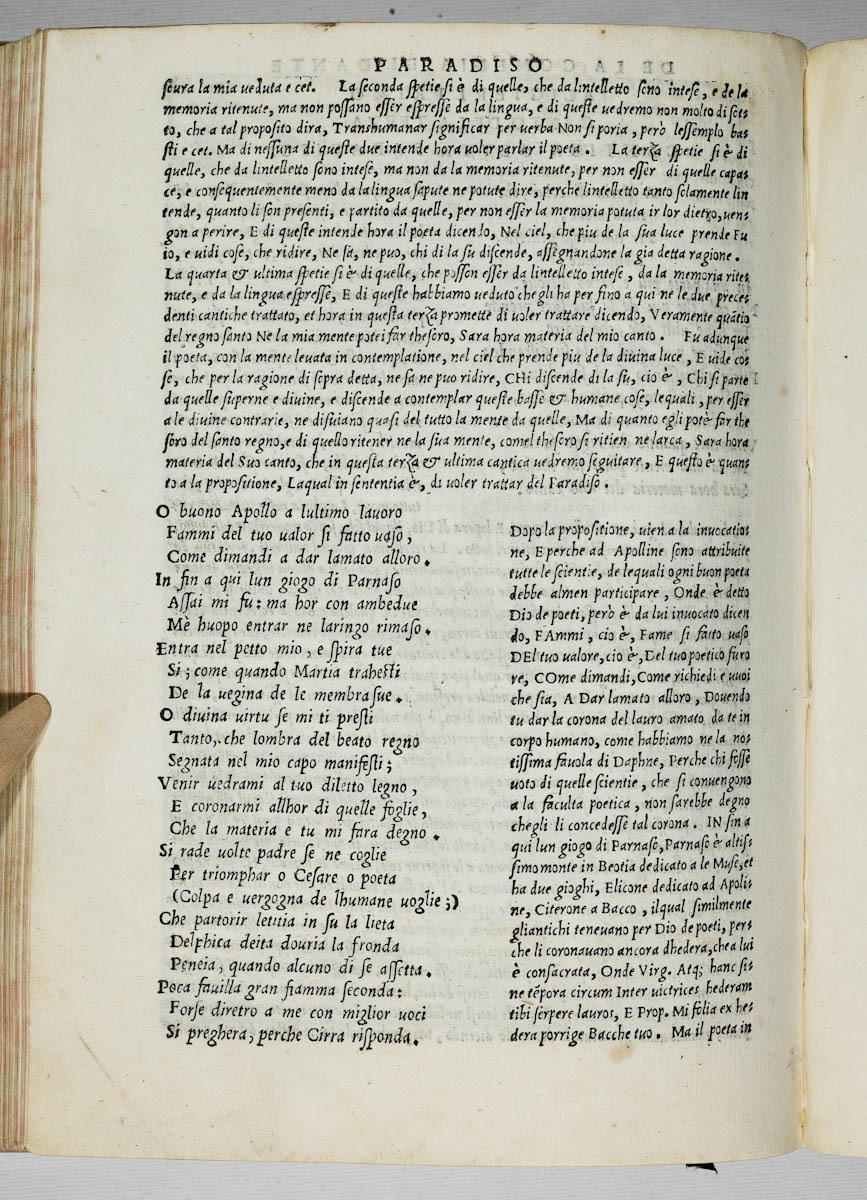 PARADISO
soura la mia ueduta e cet. La seconda spetie si è di quelle, che da lintelletto sono intese, e de la
memoria ritenute, ma non possano esser espresse da la lingua, e di queste uedremo non molto di sot-
to, che a tal proposito dira, Transhumanar significar per uerba Non si poria, però lessemplo bas
sti e cet. Ma di nessuna di queste due intende hora uoler parlar il poeta. La terza spetie si è di
quelle, che da lintelletto sono intese, ma non da la memoria ritenute, per non esser di quelle capa-
ce, e consequentemente meno da la lingua sapute ne potute dire, perche lintelletto tanto solamente lin
tende, quanto li son presenti, e partito da quelle, per non esser la memoria potuta ir lor dietro, uen-
gon a perire, E di queste intende hora il poeta dicendo, Nel ciel, che piu de la sua luce prende Fu
io, e uidi cose, che ridire, Ne sa, ne puo, chi di la su discende, assegnandone la gia detta ragione.
La quarta & ultima spetie si è di quelle, che posson esser da lintelletto intese, da la memoria rite-
nute, e da la lingua espresse, E di queste habbiamo ueduto chegli ha per fino a qui ne le due prece-
denti cantiche trattato, et hora in questa terza promette di uoler trattare dicendo, Veramente quãtio
del regno santo Ne la mia mente potei far thesoro, Sara hora materia del mio canto. Fu adunque
il poeta, con la mente leuata in contemplatione, nel ciel che prende piu de la diuina luce, E uide co-
se, che per la ragione di sopra detta, ne sa ne puo ridire, CHi discende di la su, cio è, Chi si parte
da quelle superne e diuine, e discende a contemplar queste basse & humane cose, lequali, per esser
a le diuine contrarie, ne disuiano quasi del tutto la mente da quelle, Ma di quanto egli potè far the
soro del santo regno, e di quello ritener ne la sua mente, comel thesoro si ritien ne larca, Sara hora
materia del Suo canto, che in questa terza & ultima cantica uedremo seguitare, E questo è quan-
to a la propositione, Laqual in sententia è, di uoler trattar del Paradiso.
O buono Apollo a lultimo lauoro
Fammi del tuo ualor si fatto uaso,
Come dimandi a dar lamato alloro.
In fin a qui lun giogo di Parnaso
Assai mi fu: ma hor con ambedue
Mè huopo entrar ne laringo rimaso.
Entra nel petto mio, e spira tue
Si; come quando Martia trahesti
De la uegina de le membra sue.
O diuina uirtu se mi ti presti
Tanto, che lombra del beato regno
Segnata nel mio capo manifesti;
Venir uedrami al tuo diletto legno,
E coronarmi allhor di quelle foglie,
Che la materia e tu mi fara degno.
Si rade uolte padre se ne coglie
Per triomphar o Cesare o poeta
(Colpa e uergogna de lhumane uoglie;)
Che partorir letitia in su la lieta
Delphica deita douria la fronda
Peneia, quando alcuno di se assetta.
Poca fauilla gran fiamma seconda:
Forse diretro a me con miglior uoci
Si preghera, perche Cirra risponda.
Dopo la propositione, uien a la inuocatio-
ne, E perche ad Apolline sono attribuite
tutte le scientie, de lequali ogni buon poeta
debbe almen participare, Onde è detto
Dio de poeti, però è da lui inuocato dicen
do, FAmmi, cio è, Fame si fatto uaso
DEl tuo ualore, cio è, Del tuo poetico furo
re, COme dimandi, Come richiedi e uuoi
che sia, A Dar lamato alloro, Douendo
tu dar la corona del lauro amato da te in
corpo humano, come habbiamo ne la no-
tissima fauola di Daphne, Perche chi fosse
uoto di quelle scientie, che si conuengono
a la faculta poetica, non sarebbe degno
chegli li concedesse tal corona. IN fin a
qui lun giogo di Parnaso, Parnaso è altis-
simo monte in Beotia dedicato a le Muse, et
ha due gioghi, Elicone dedicato ad Apoli-
ne, Citerone a Bacco, ilqual similmente
gliantichi teneuano per Dio de poeti, per-
che li coronauano ancora dhedera, che a lui
è consacrata, Onde Virg. Atq; hanc si-
ne tẽpora circum Inter uictrices hederam
tibi serpere lauros, E Prop. Mi folia ex he-
dera porrige Bacche tuo. Ma il poeta in